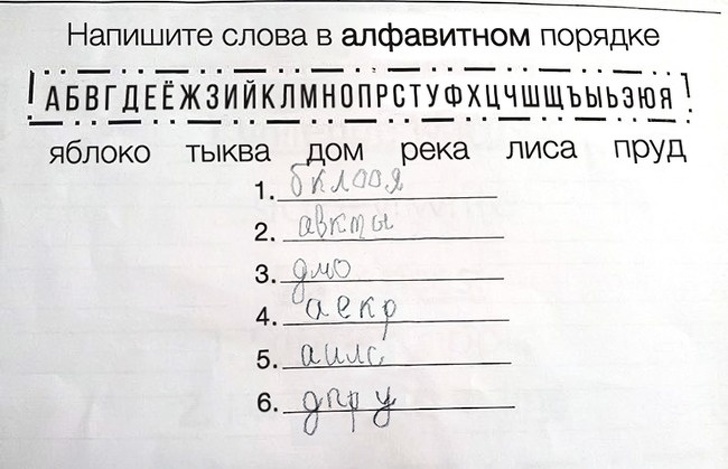 Напишите слова в алфавитном порядке
АБВГДЕЁЖЗИЙКЛМНОПРСТУФХЦЧШЩЪЫЬЭЮЯ
яблоко тыква дом река лиса пруд
1. бклооя
2. авкты
3. дмо
4. аекр
5. аилс
6. дпру